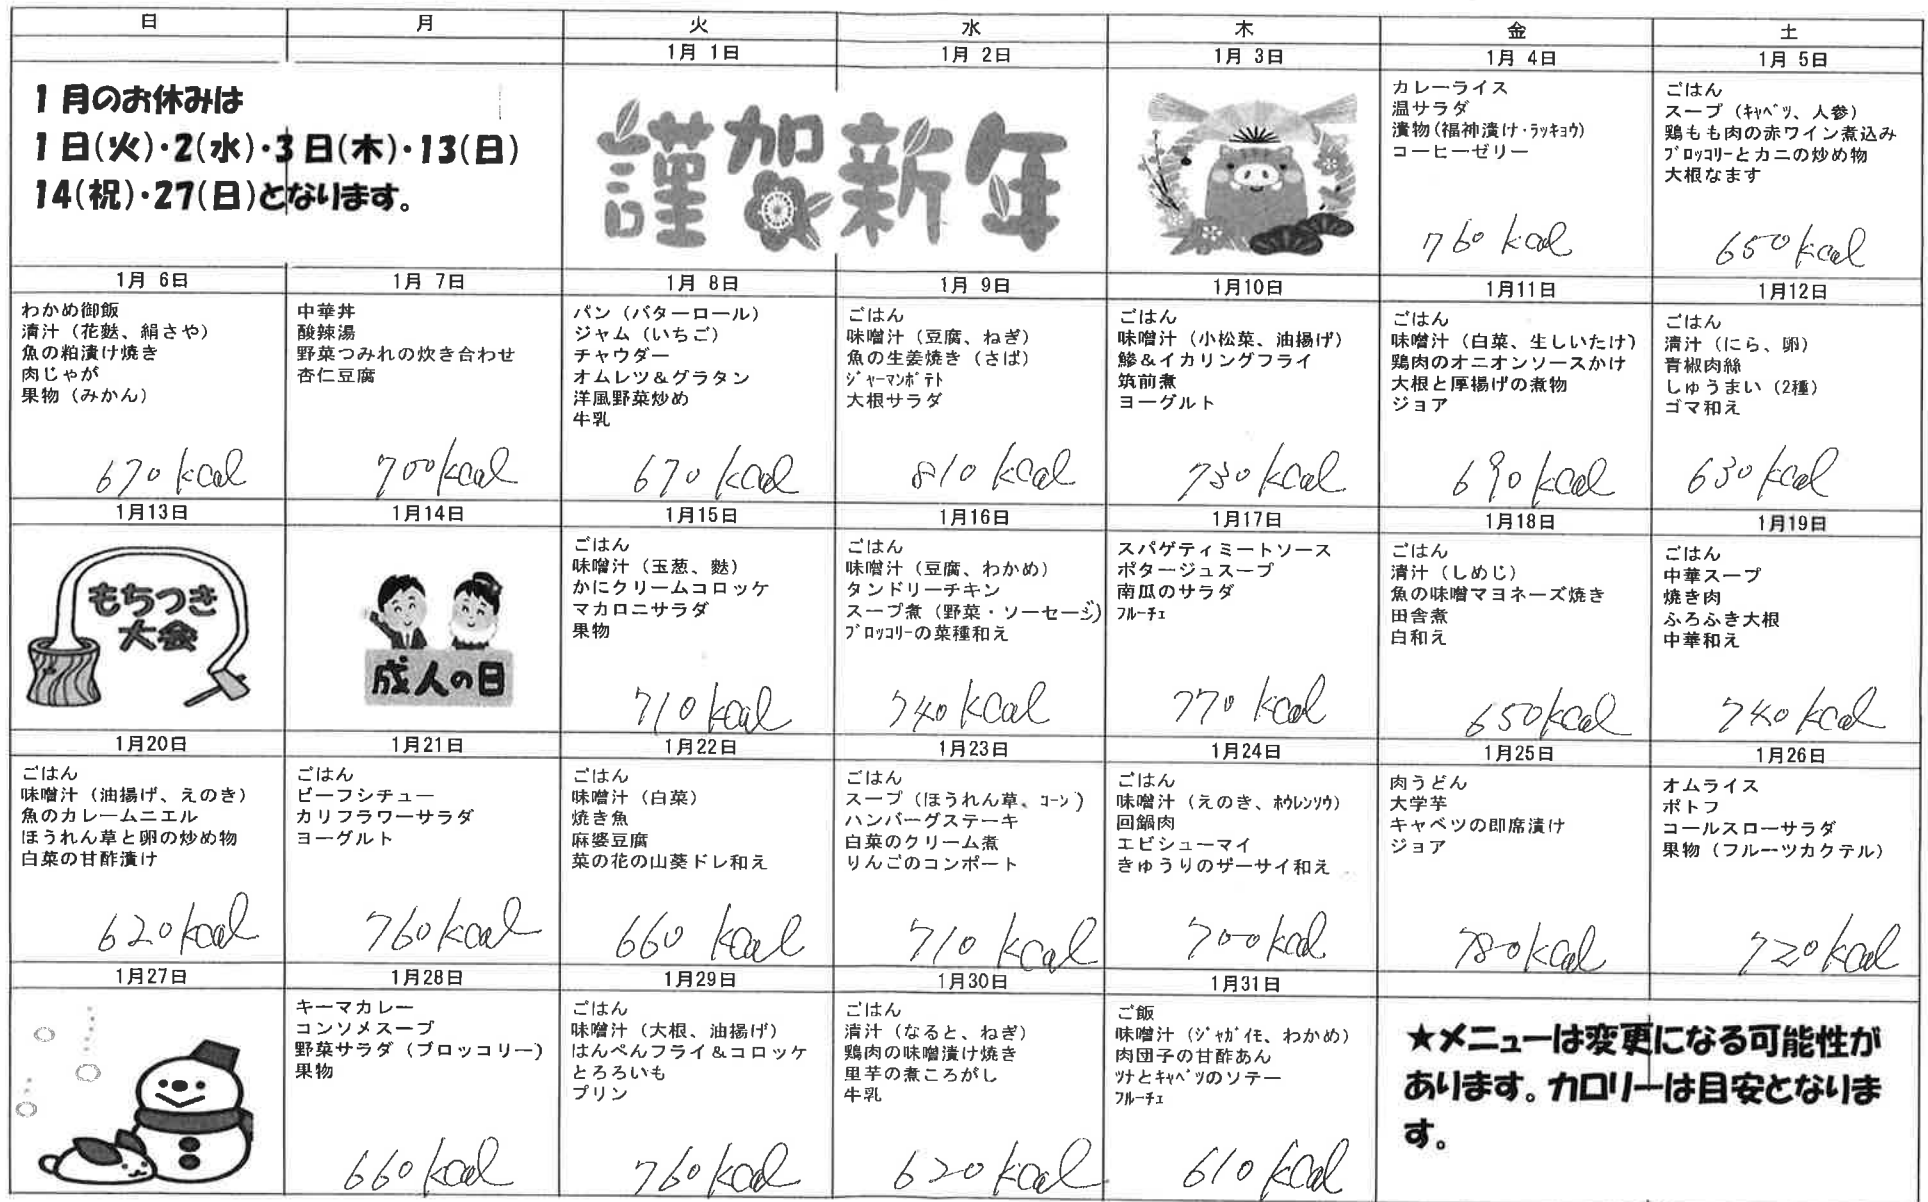 日 月 火 水 木 金 土
1月 1日 1月 2日 1月 3日 1月 4日 1月 5日
1月のお休みは
1日(火)・2(水)・3日(木)・13(日)
14(祝)・27(日)となります。
謹賀新年
カレーライス
温サラダ
漬物(福神漬け・ﾗｯｷｮｳ)
コーヒーゼリー
760 kcal
ごはん
スープ（ｷｬﾍﾞﾂ、人参）
鶏もも肉の赤ワイン煮込み
ﾌﾞﾛｯｺﾘｰとカニの炒め物
大根なます
650 kcal
1月 6日 1月 7日 1月 8日 1月 9日 1月10日 1月11日 1月12日
わかめ御飯
清汁（花麩、絹さや）
魚の粕漬け焼き
肉じゃが
果物（みかん）
670 kcal
中華丼
酸辣湯
野菜つみれの炊き合わせ
杏仁豆腐
700 kcal
パン（バターロール）
ジャム（いちご）
チャウダー
オムレツ＆グラタン
洋風野菜炒め
牛乳
670 kcal
ごはん
味噌汁（豆腐、ねぎ）
魚の生姜焼き（さば）
ｼﾞｬｰﾏﾝﾎﾟﾃﾄ
大根サラダ
810 kcal
ごはん
味噌汁（小松菜、油揚げ）
鯵＆イカリングフライ
筑前煮
ヨーグルト
730 kcal
ごはん
味噌汁（白菜、生しいたけ）
鶏肉のオニオンソースかけ
大根と厚揚げの煮物
ジョア
690 kcal
ごはん
清汁（にら、卵）
青椒肉絲
しゅうまい（2種）
ゴマ和え
630 kcal
1月13日 1月14日 1月15日 1月16日 1月17日 1月18日 1月19日
もちつき
大会
成人の日
ごはん
味噌汁（玉葱、麩）
かにクリームコロッケ
マカロニサラダ
果物
710 kcal
ごはん
味噌汁（豆腐、わかめ）
タンドリーチキン
スープ煮（野菜・ソーセージ）
ﾌﾞﾛｯｺﾘｰの菜種和え
740 kcal
スパゲティミートソース
ポタージュスープ
南瓜のサラダ
ﾌﾙｰﾁｪ
770 kcal
ごはん
清汁（しめじ）
魚の味噌マヨネーズ焼き
田舎煮
白和え
650 kcal
ごはん
中華スープ
焼き肉
ふろふき大根
中華和え
740 kcal
1月20日 1月21日 1月22日 1月23日 1月24日 1月25日 1月26日
ごはん
味噌汁（油揚げ、えのき）
魚のカレームニエル
ほうれん草と卵の炒め物
白菜の甘酢漬け
620 kcal
ごはん
ビーフシチュー
カリフラワーサラダ
ヨーグルト
760 kcal
ごはん
味噌汁（白菜）
焼き魚
麻婆豆腐
菜の花の山葵ドレ和え
660 kcal
ごはん
スープ（ほうれん草、ｺｰﾝ）
ハンバーグステーキ
白菜のクリーム煮
りんごのコンポート
710 kcal
ごはん
味噌汁（えのき、ﾎｳﾚﾝｿｳ）
回鍋肉
エビシューマイ
きゅうりのザーサイ和え
700 kcal
肉うどん
大学芋
キャベツの即席漬け
ジョア
780 kcal
オムライス
ポトフ
コールスローサラダ
果物（フルーツカクテル）
720 kcal
1月27日 1月28日 1月29日 1月30日 1月31日
キーマカレー
コンソメスープ
野菜サラダ（ブロッコリー）
果物
660 kcal
ごはん
味噌汁（大根、油揚げ）
はんぺんフライ＆コロッケ
とろろいも
プリン
760 kcal
ごはん
清汁（なると、ねぎ）
鶏肉の味噌漬け焼き
里芋の煮ころがし
牛乳
620 kcal
ご飯
味噌汁（ｼﾞｬｶﾞｲﾓ、わかめ）
肉団子の甘酢あん
ﾂﾅとｷｬﾍﾞﾂのソテー
ﾌﾙｰﾁｪ
610 kcal
★メニューは変更になる可能性が
あります。カロリーは目安となりま
す。